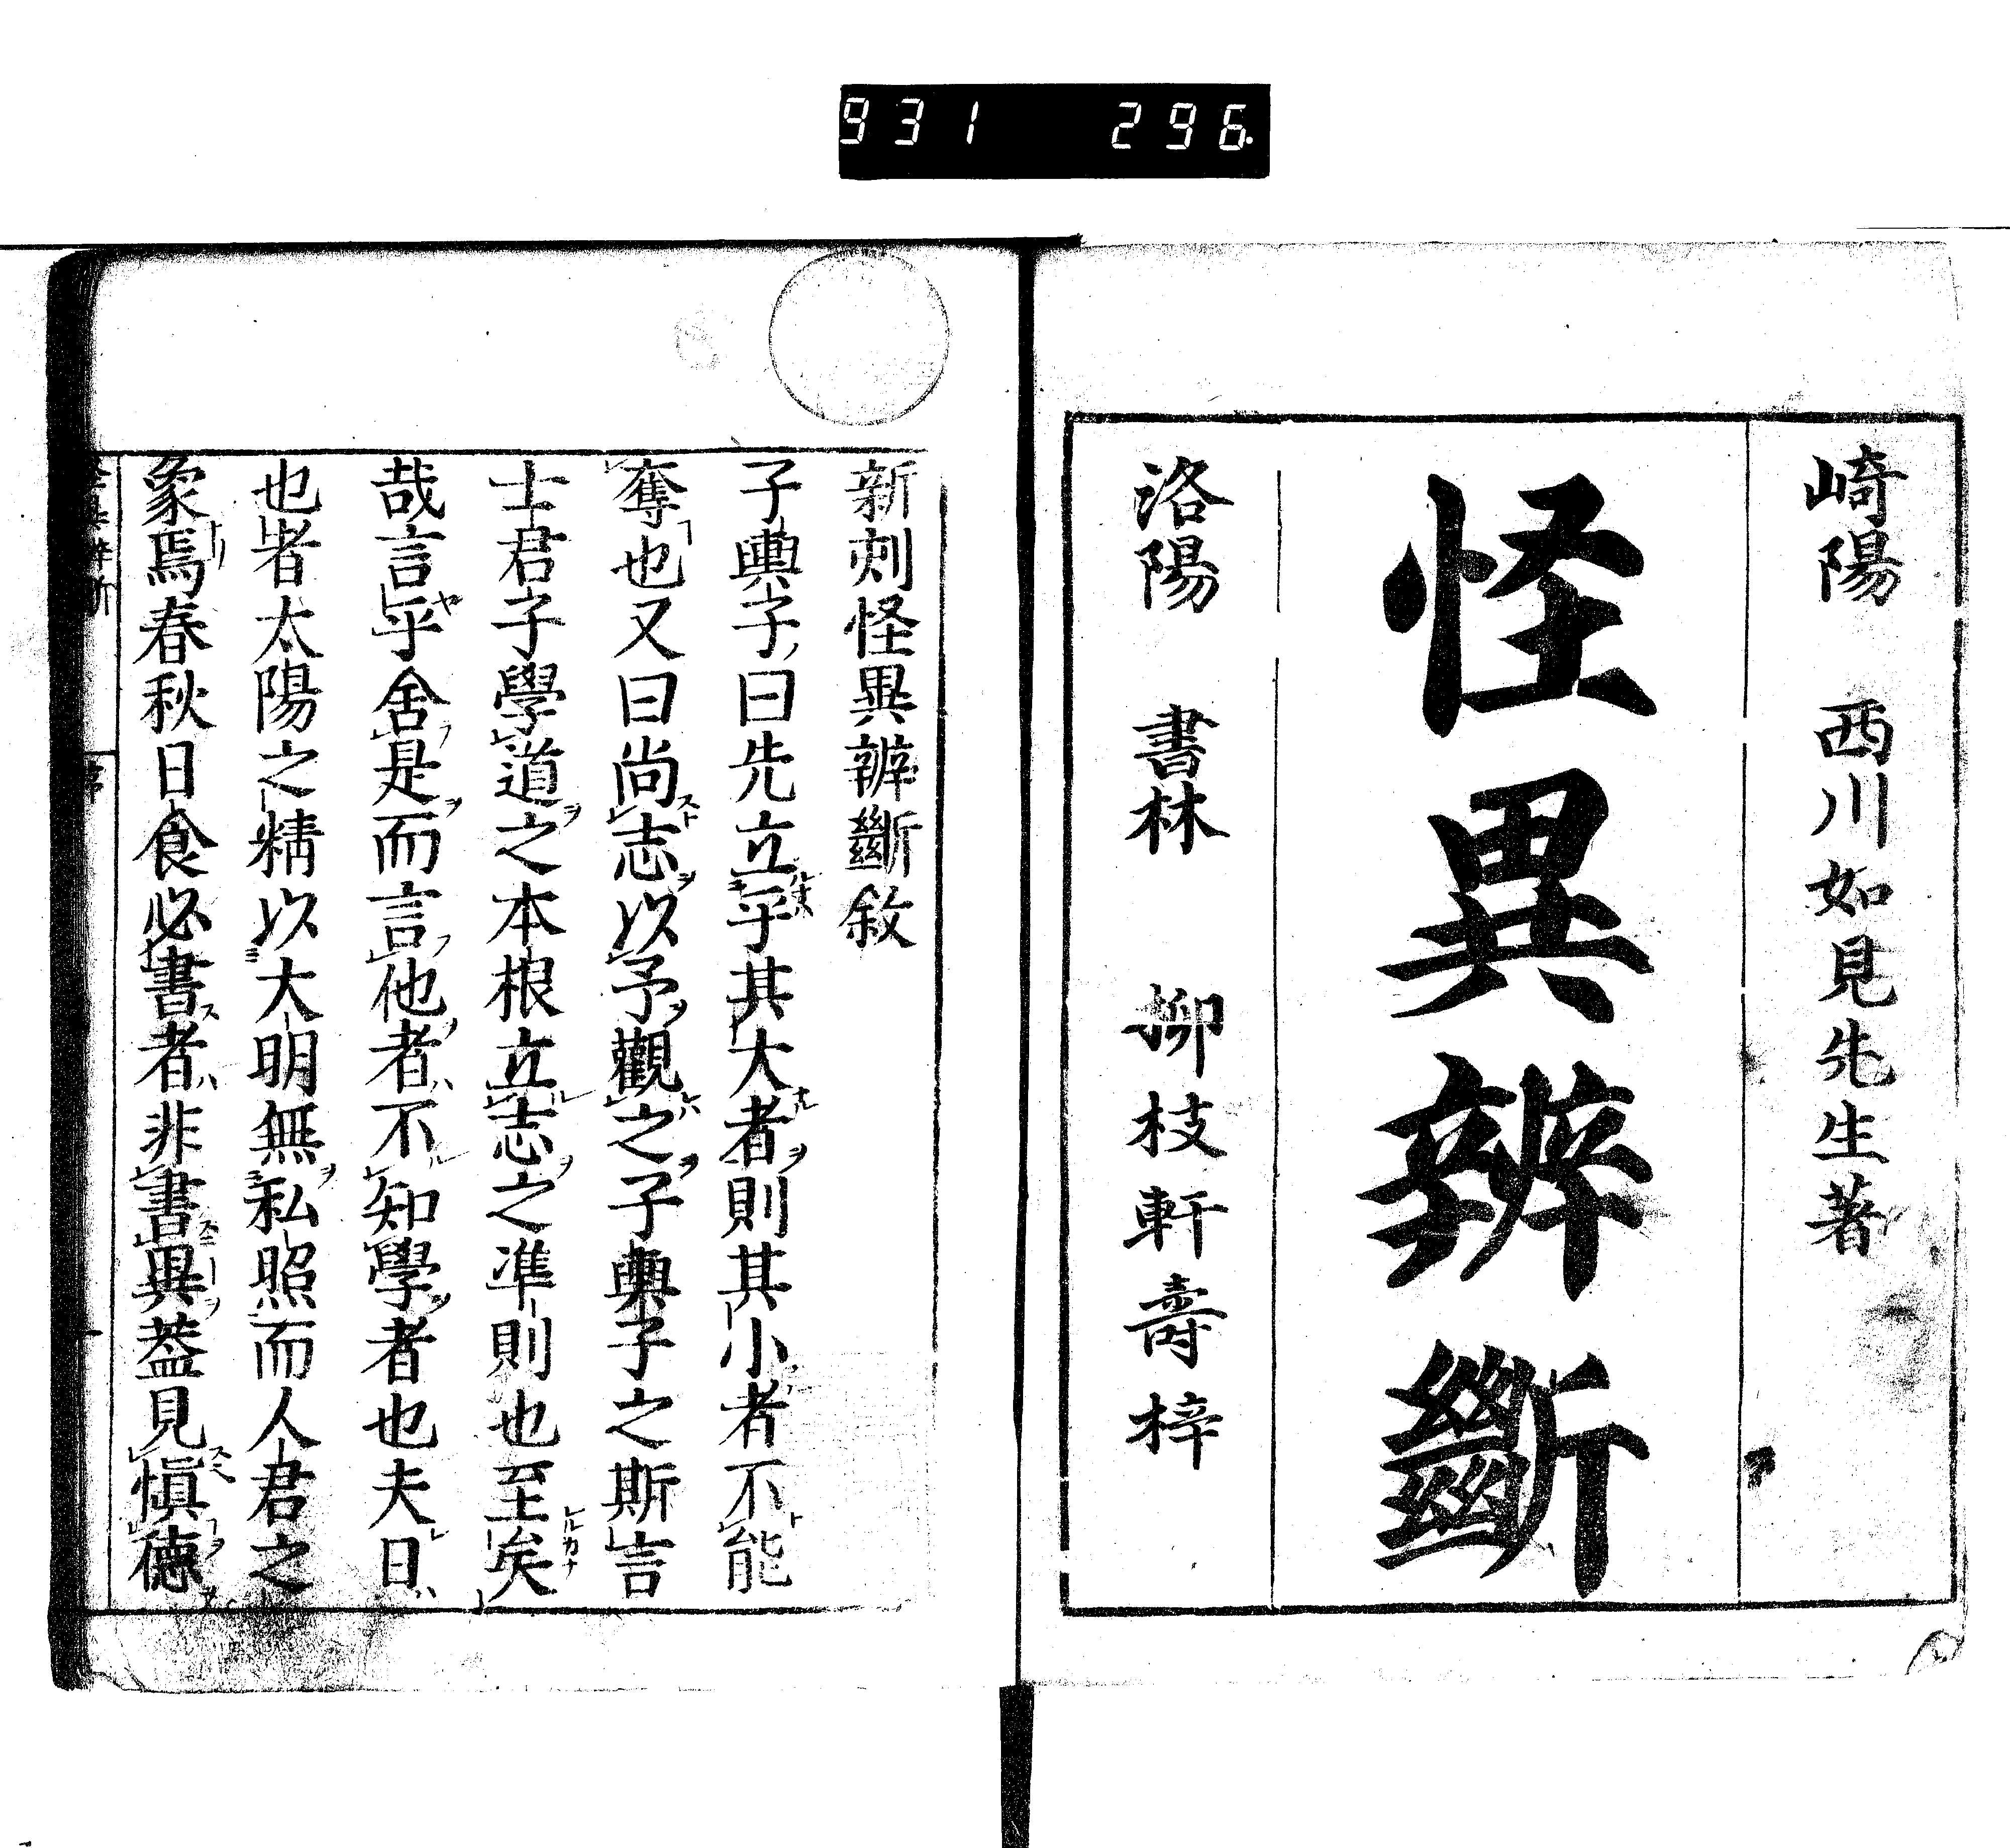 931 296.
崎陽 西川如見先生著
怪異辨斷
洛陽 書林 柳枝軒壽梓
新刻怪異辨斷敘
子輿子曰先立乎其大者則其小者不能
奪也又曰尚志以予觀之子輿子之斯言
士君子學道之本根立志之準則也至矣
哉言乎舍是而言他者不知學者也夫日
也者太陽之精以大明無私照而人君之
象焉春秋日食必書者非書異蓋見愼德